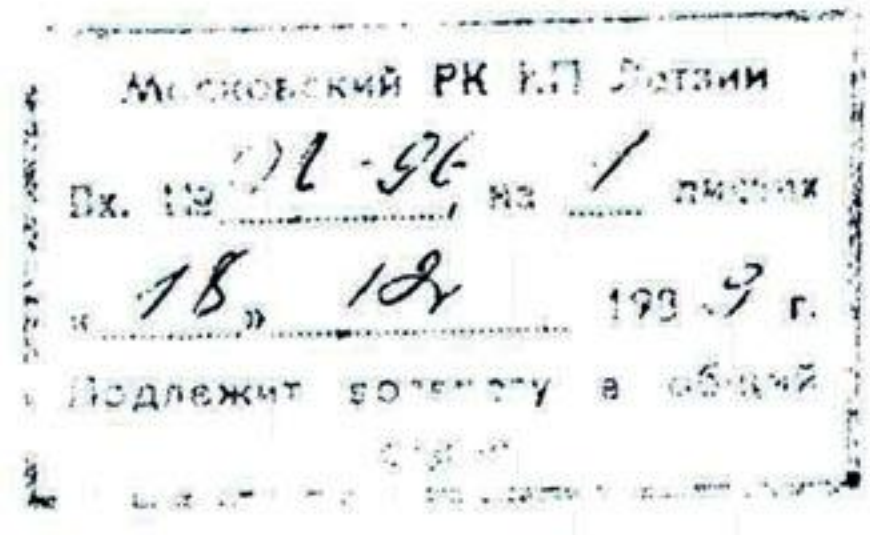 Московский РК КП Латвии
Вх. № на 1 листах
« 18 » 12 1989 г.
Подлежит возврату в общий
отдел